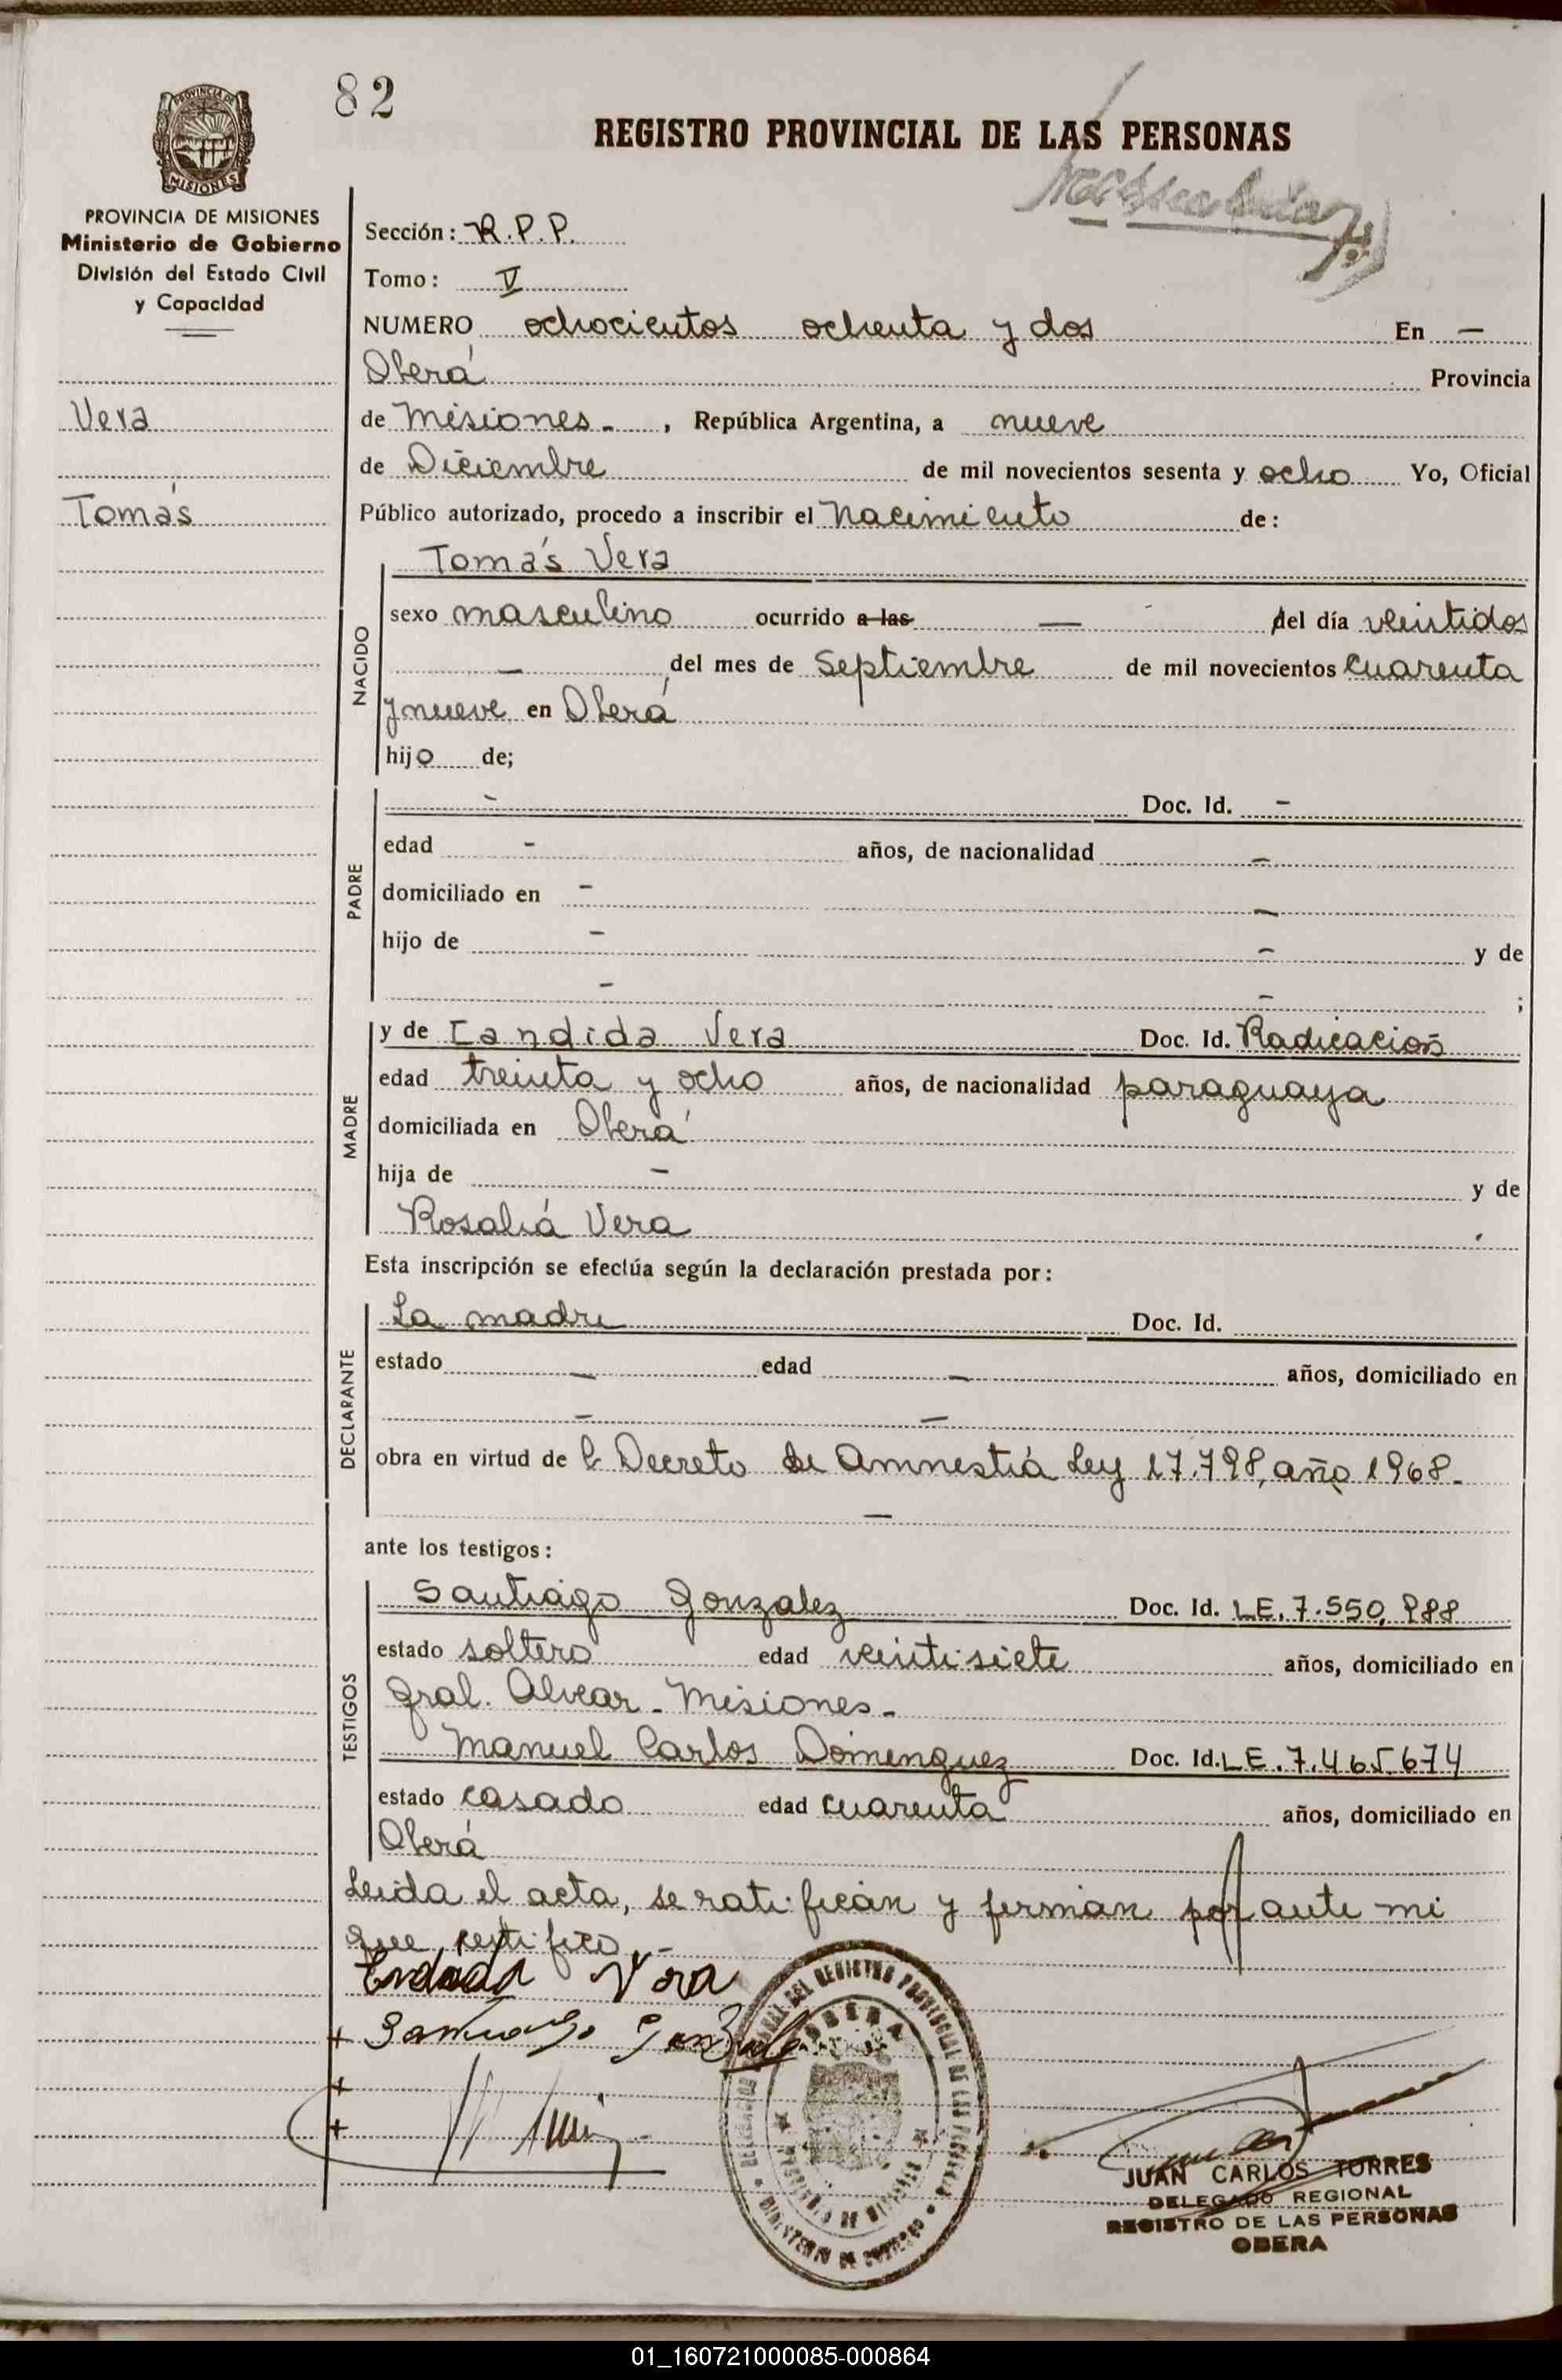 82
REGISTRO PROVINCIAL DE LAS PERSONAS
PROVINCIA DE MISIONES
MISIONES
PROVINCIA DE MISIONES
Ministerio de Gobierno
División del Estado Civil
y Capacidad
Vera
Tomás
Sección: R.P.P.
Tomo: V
NUMERO ochocientos ochenta y dos En —
Oberá Provincia
de Misiones - , República Argentina, a nueve
de Diciembre de mil novecientos sesenta y ocho Yo, Oficial
Público autorizado, procedo a inscribir el Nacimiento de:
NACIDO
Tomás Vera
sexo masculino ocurrido a las — del día veintidos
— del mes de Septiembre de mil novecientos cuarenta
y nueve en Oberá
hijo de;
PADRE
- Doc. Id. -
edad - años, de nacionalidad -
domiciliado en - -
hijo de - - y de
- - ;
MADRE
y de Candida Vera Doc. Id. Radicación
edad treinta y ocho años, de nacionalidad paraguaya
domiciliada en Oberá
hija de - y de
Rosaliá Vera
Esta inscripción se efectúa según la declaración prestada por:
DECLARANTE
La madre Doc. Id.
estado — edad — años, domiciliado en
— —
obra en virtud de Decreto de Amnestiá Ley 17.798, año 1968.-
—
ante los testigos:
TESTIGOS
Santiago Gonzalez Doc. Id. LE. 7.550.988
estado soltero edad veintisiete años, domiciliado en
Gral. Alvear - Misiones -
Manuel Carlos Domenguez Doc. Id. LE. 7.465.674
estado casado edad cuarenta años, domiciliado en
Oberá
Leida el acta, se ratifican y firman por ante mi
que certifico. -
Vera
Santiago Gonzalez
DEL REGISTRO PROVINCIAL DE LAS PERSONAS
OBERA
MINISTERIO DE GOBIERNO
PROVINCIA DE MISIONES
JUAN CARLOS TORRES
DELEGADO REGIONAL
REGISTRO DE LAS PERSONAS
OBERA
01_160721000085-000864